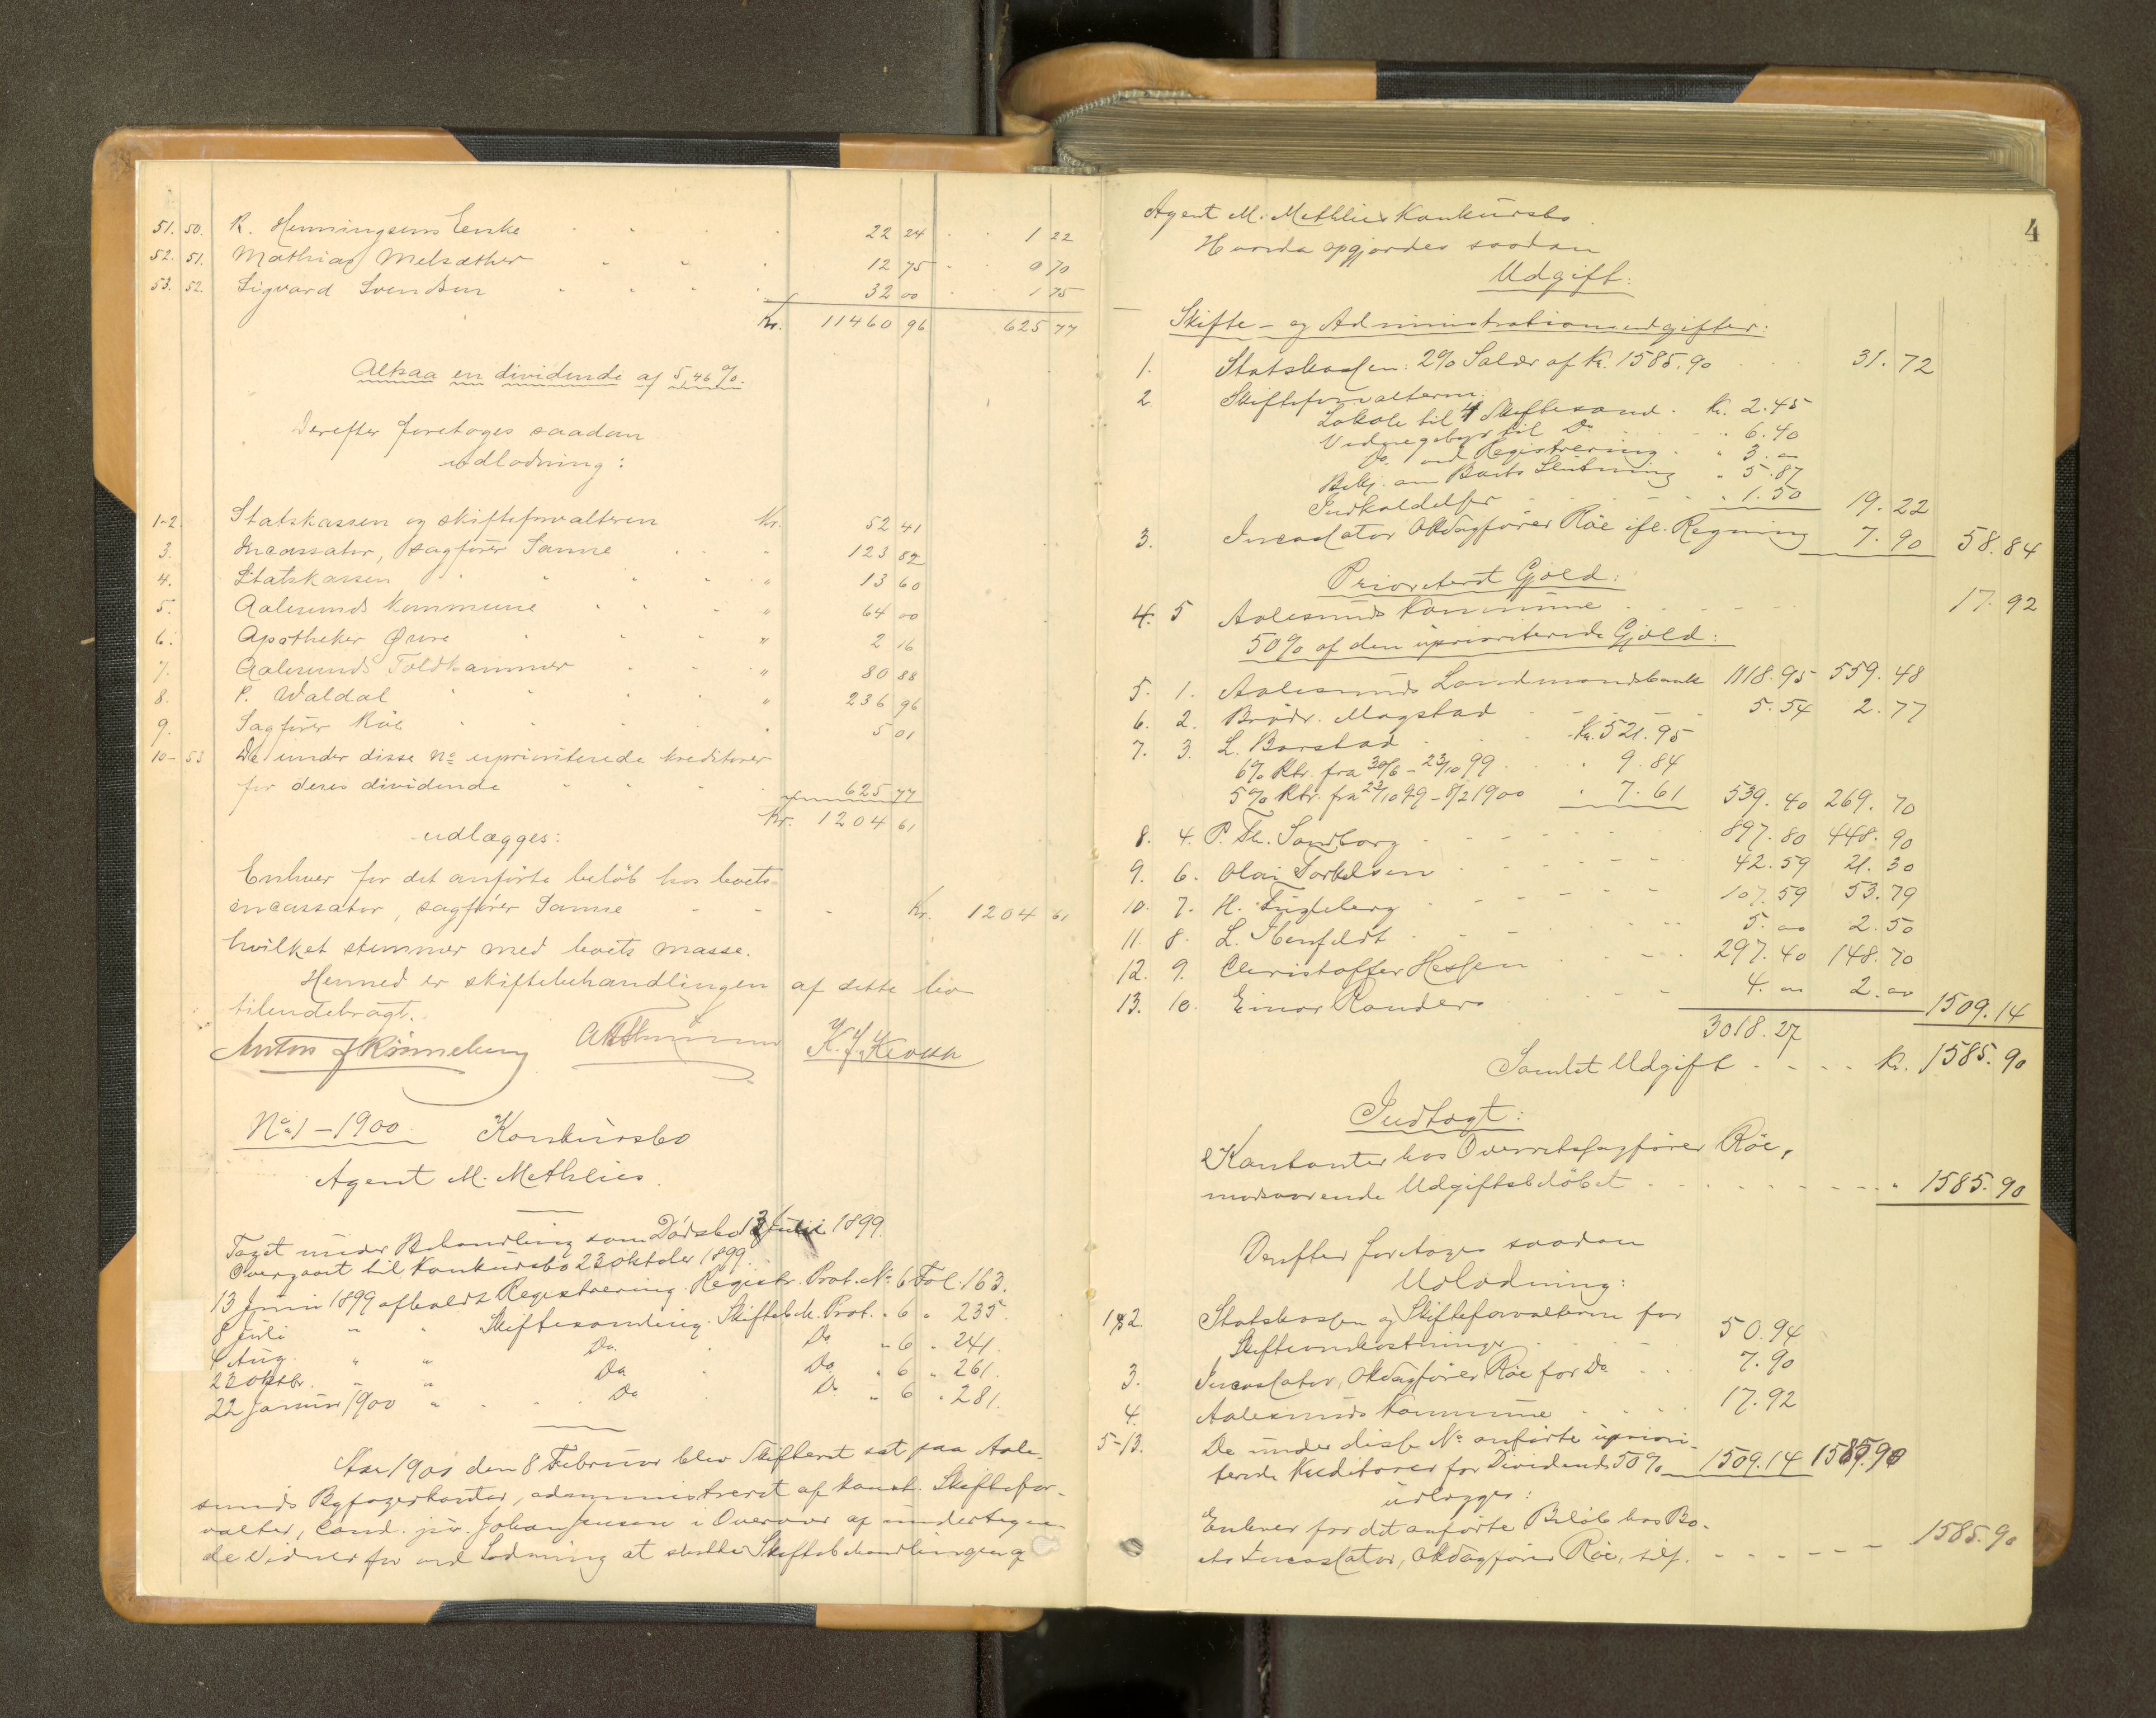 51. 50. R. Henningsens Enke 22 24 1 22
52. 51. Mathias Melsæther 12 75 0 70
53. 52. Sigvard Svendsen 32 00 1 75
Kr. 11460 96 625 77
Altsaa en dividende af 5,46 %.
Derefter foretoges saadan
udlodning:
1-2. Statskassen og skifteforvalteren Kr. 52 41
3. Incassator, sagfører Sanne " 123 82
4. Statskassen " 13 60
5. Aalesunds Kommune " 64 00
6. Apotheker Øwre " 2 16
7. Aalesunds Toldkammer " 80 88
8. P. Waldal " 236 96
9. Sagfører Røe " 5 01
10-53 De under disse No uprioriterede kreditorer
for deres dividende 625 77
Kr. 1204 61
udlægges:
Enhver for det anførte beløb hos boets
incassator, sagfører Sanne Kr. 1204 61
hvilket stemmer med boets masse.
Hermed er skiftebehandlingen af dette bo
tilendebragt.
Anton J Rønneberg K. J. Kvasse
No 1 - 1900. Konkursbo
Agent M. Methlies.
Taget under Behandling som Dødsbo 13 Juni 1899.
Overgaaet til Konkursbo 23 oktober 1899.
13 Juni 1899 afholdt Registrering. Registr. Prot. No 6 Fol. 163.
8 Juli " " Skiftesamling. Skifteb. Prot. " 6 " 235.
4 Aug. " " Do. Do " 6 " 241.
23 oktbr. " " Do Do " 6 " 261.
22 Januar 1900 " Do Do " 6 " 281.
Aar 1900 den 8 Februar blev Skifteret sat paa Aale-
sunds Byfogedkontor, administreret af konst. Skiftefor-
valter, Cand. jur. Johan Jensen i Overvær af undertegne-
de Vidner for ved Lodning at slutte Skiftebehandlingen af
4
Agent M. Methlies Konkursbo.
Hvorda opgjordes saadan
Udgift:
Skifte- og Administrationsudgifter:
1. Statskassen: 2% Salær af Kr. 1585.90 31.72
2. Skifteforvalteren:
Lokale til 4 Skiftesaml. Kr. 2.45
Vidnegebyr til Do " 6.40
Do. ved Registrering " 3.00
Bekj. om Boets Slutning " 5.87
Indkaldelser " 1.50 19.22
3. Incassator ORsagfører Røe ifl. Regning 7.90 58.84
Prioriteret Gjæld:
4. 5 Aalesunds Kommune 17.92
50% af den upriorterede Gjæld:
5. 1. Aalesunds Landmandsbank 1118.95 559.48
6. 2. Brødr. Magstad 5.54 2.77
7. 3. L. Barstad Kr. 521.95
6% Rtr. fra 30/6 - 23/10 99 " 9.84
5% Rtr. fra 23/10 99 - 8/2 1900 " 7.61 539.40 269.70
8. 4. P. Th. Sandborg 897.80 448.90
9. 6. Olai Torkelsen 42.59 21.30
10. 7. H. Fugleberg 107.59 53.79
11. 8. L. Ibenfeldt 5.00 2.50
12. 9. Christoffer Hessen 297.40 148.70
13. 10. Einar Randers 4.00 2.00 1509.14
3018.27
Samlet Udgift Kr. 1585.90
Indtægt:
Kontanter hos Overretssagfører Røe,
modsvarende Udgiftsbeløbet " 1585.90
Derefter foretoges saadan
Udlodning:
1 & 2. Statskassen og Skifteforvalteren for
Skifteomkostninger 50.94
3. Incassator, ORsagfører Røe for Do 7.90
4. Aalesunds Kommune 17.92
5-13. De under disse No anførte upriori-
terede Kreditorer for Dividende 50% 1509.14 1585.90
udlægges:
Enhver for det anførte Beløb hos Bo-
ets Incassator, ORsagfører Røe, tils. 1585.90